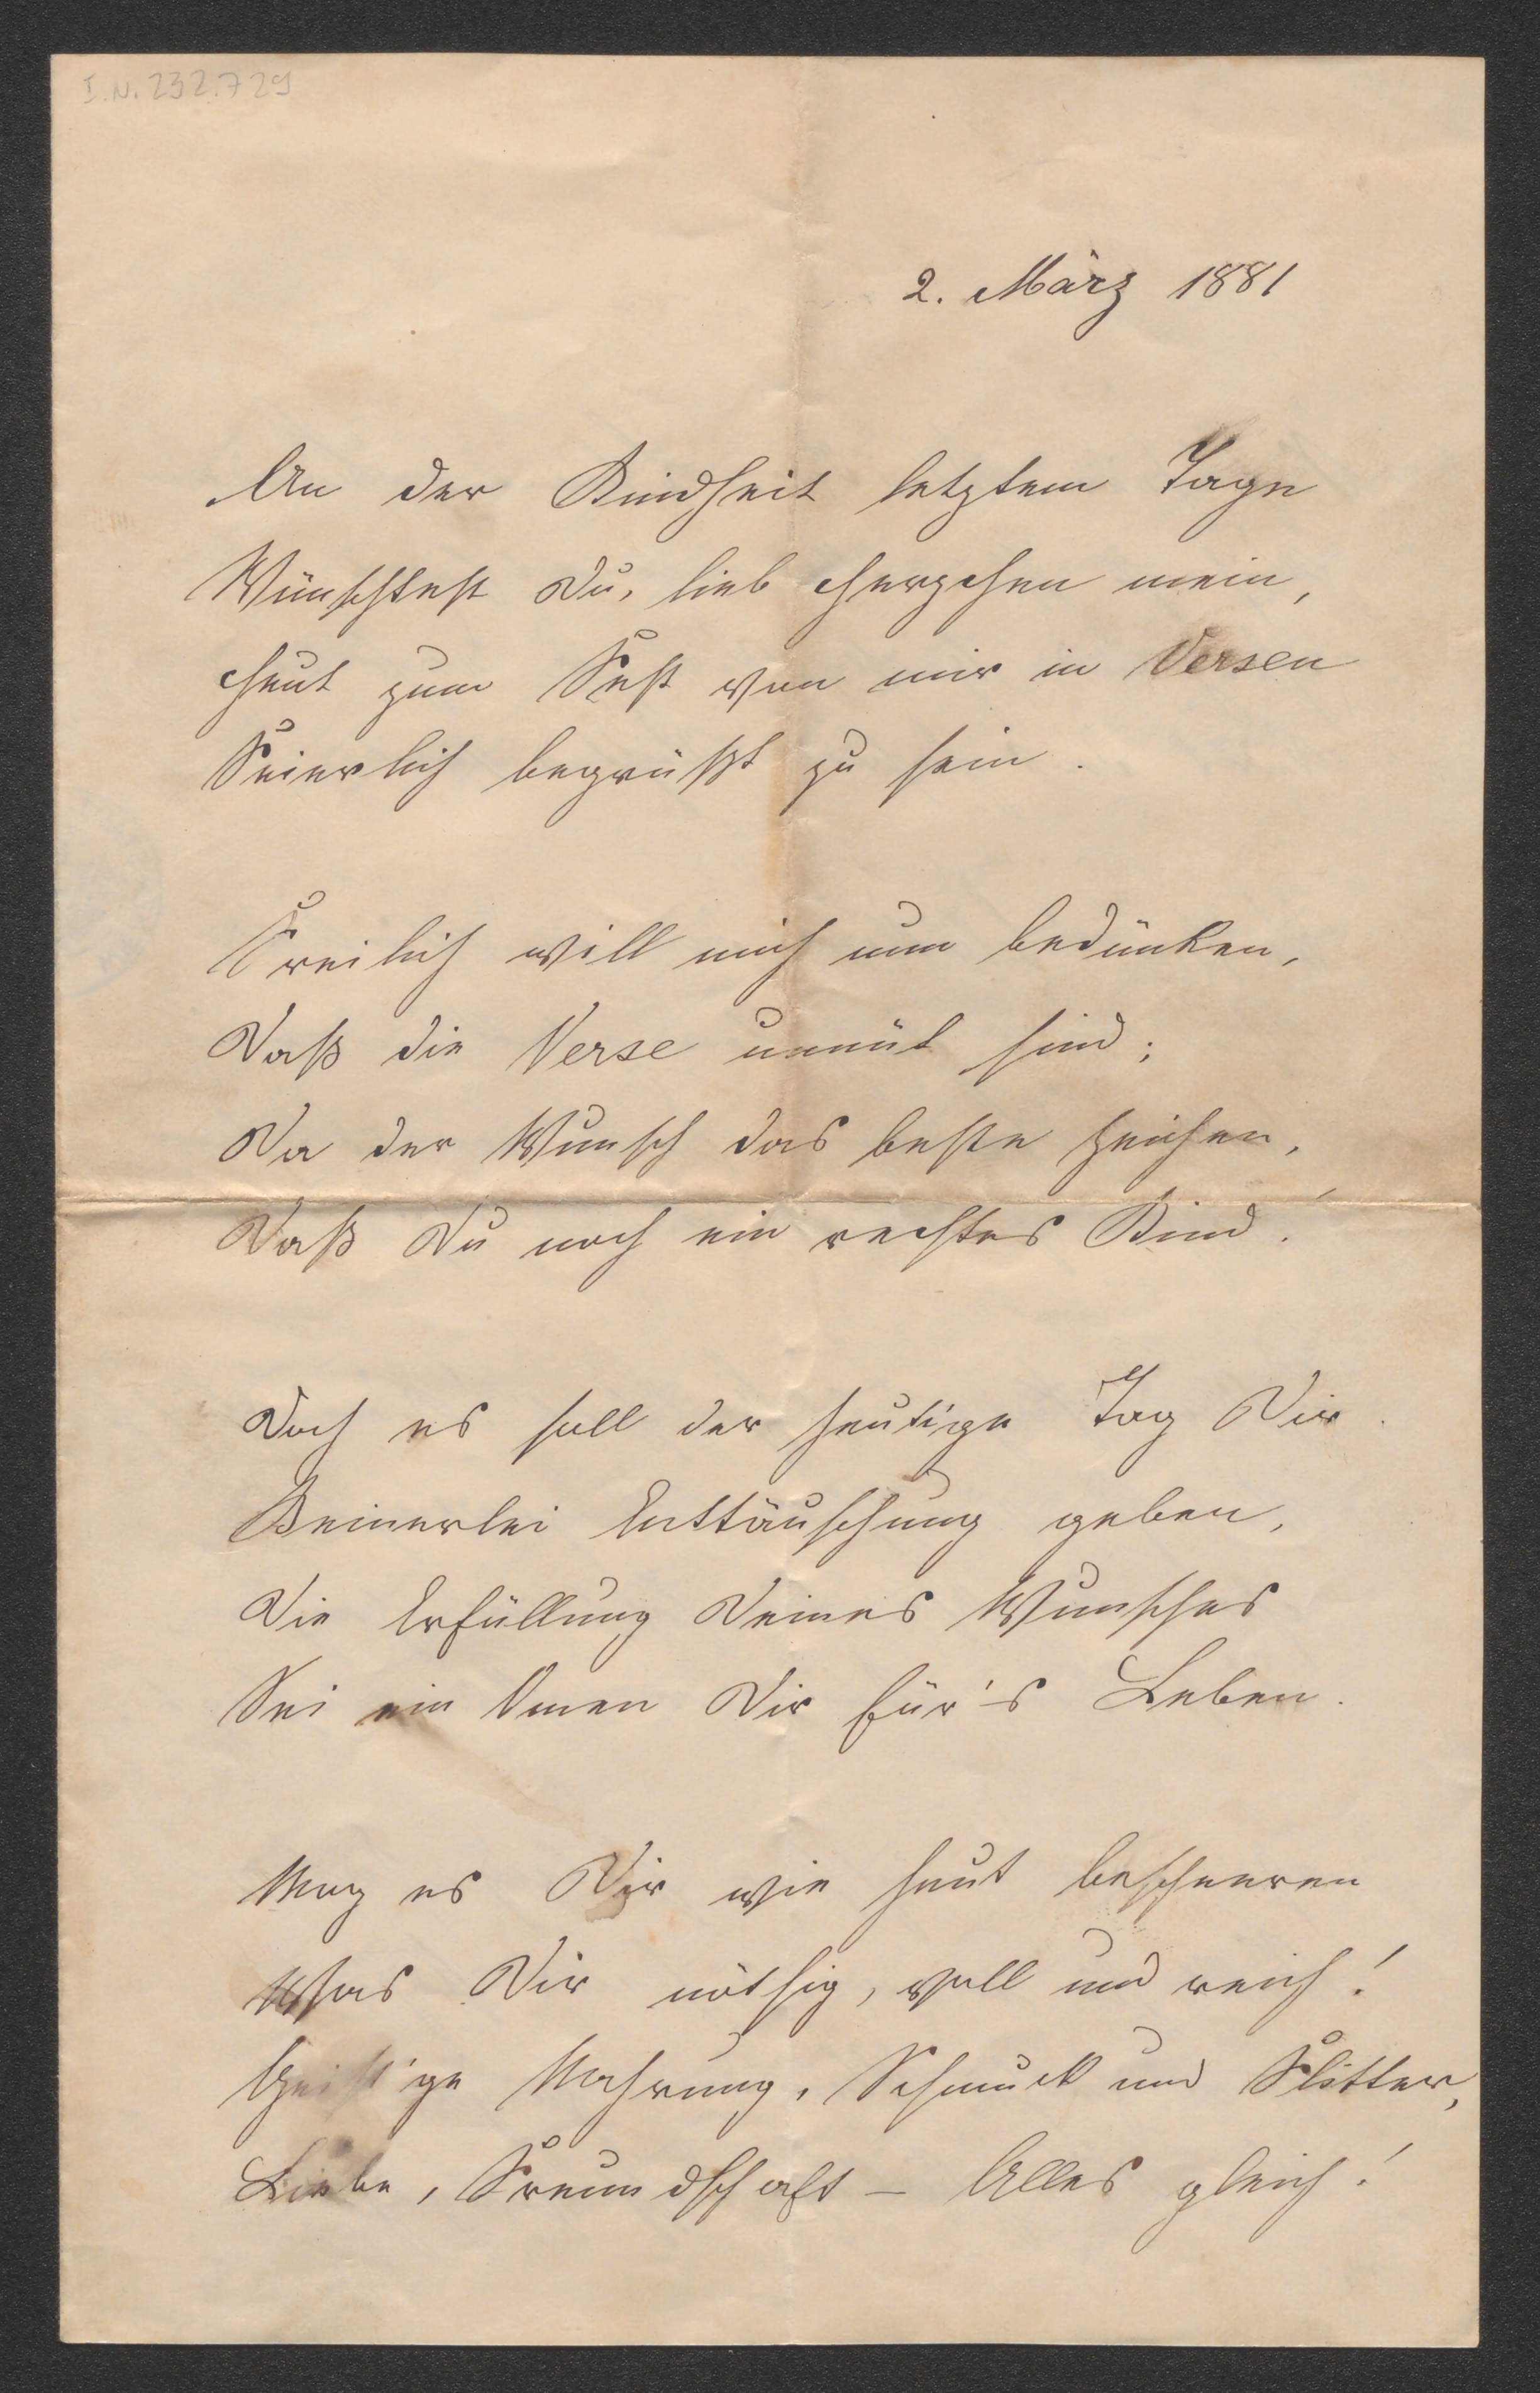 I.N. 232.729
2. März 1881
An der Kindheit letztem Tage
Wünschtest Du, lieb Herzchen mein,
Heut zum Fest von mir in Versen
Feierlich begrüßt zu sein.
Freilich will mich nun bedünken,
Daß die Verse unnüt sind;
Da der Wunsch das beste Zeichen,
Daß Du noch ein rechtes Kind!
Doch es soll der heutige Tag Dir
Keinerlei Enttäuschung geben,
Die Erfüllung Deines Wunsches
Sei ein Omen Dir für's Leben.
Mag es Dir wie heut bescheeren
Was Dir nöthig, voll und reich!
Geistige Nahrung, Schmuck und Flitter,
Liebe, Freundschaft – Alles gleich!